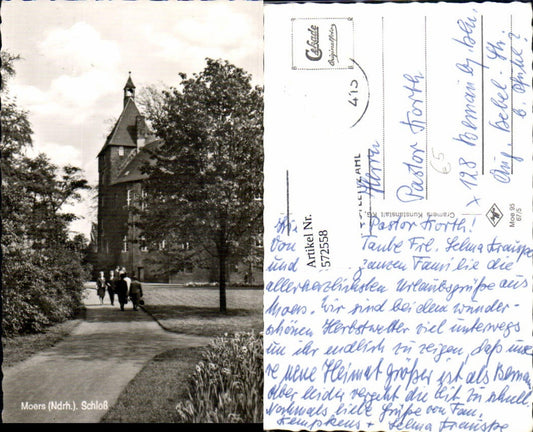 Moers (Ndrh.). Schloß
Cekade
Originalfoto
415
POSTLEITZAHL
Artikel Nr.
572558
Cramers Kunstanstalt KG.
Moe 95
67/5
Herrn
Pastor Korth
X 128 Bernau b/ Bln.
Aug. Bebel-Str.
€5
Pastor Korth!
Von Tante Frl. Selma
und ganzen Familie die
allerherzlichsten Urlaubsgrüße aus
Moers. Wir sind bei dem wunder-
schönen Herbstwetter viel unterwegs
um ihr endlich zu zeigen, daß uns
re neue Heimat größer ist als Bernau
Aber leider vergeht die Zeit zu schnell.
Nochmals liebe Grüße von Fam.
Kempkens + Selma